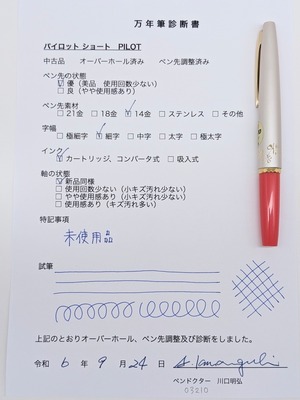 万年筆診断書
パイロット ショート PILOT
中古品 オーバーホール済み ペン先調整済み
ペン先の状態
☑優（美品 使用回数少ない）
□良（やや使用感あり）
ペン先素材
□21金 □18金 ☑14金 □ステンレス □その他
字幅
□極細字 ☑細字 □中字 □太字 □極太字
インク
☑カートリッジ、コンバータ式 □吸入式
軸の状態
☑新品同様
□使用回数少ない（小キズ汚れ少ない）
□やや使用感あり（小キズ汚れ少ない）
□使用感あり（キズ汚れ多い）
特記事項
未使用品
試筆
上記のとおりオーバーホール、ペン先調整及び診断をしました。
令和 6 年 9 月 24 日
ペンドクター 川口明弘
03210